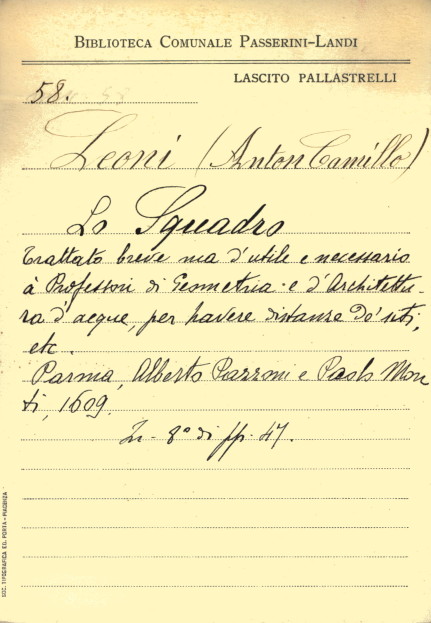 BIBLIOTECA COMUNALE PASSERINI-LANDI
LASCITO PALLASTRELLI
58.
Leoni (Anton Camillo)
Lo Squadro
Trattato breve ma d'utile e necessario
à Professori di Geometria e d'Architettu-
ra d'acque, per havere distanze Do' siti,
etc.
Parma, Alberto Pazzoni e Paolo Mon
ti, 1609.
In-8º di pp. 47.
SOC. TIPOGRAFICA ED. PORTA - PIACENZA